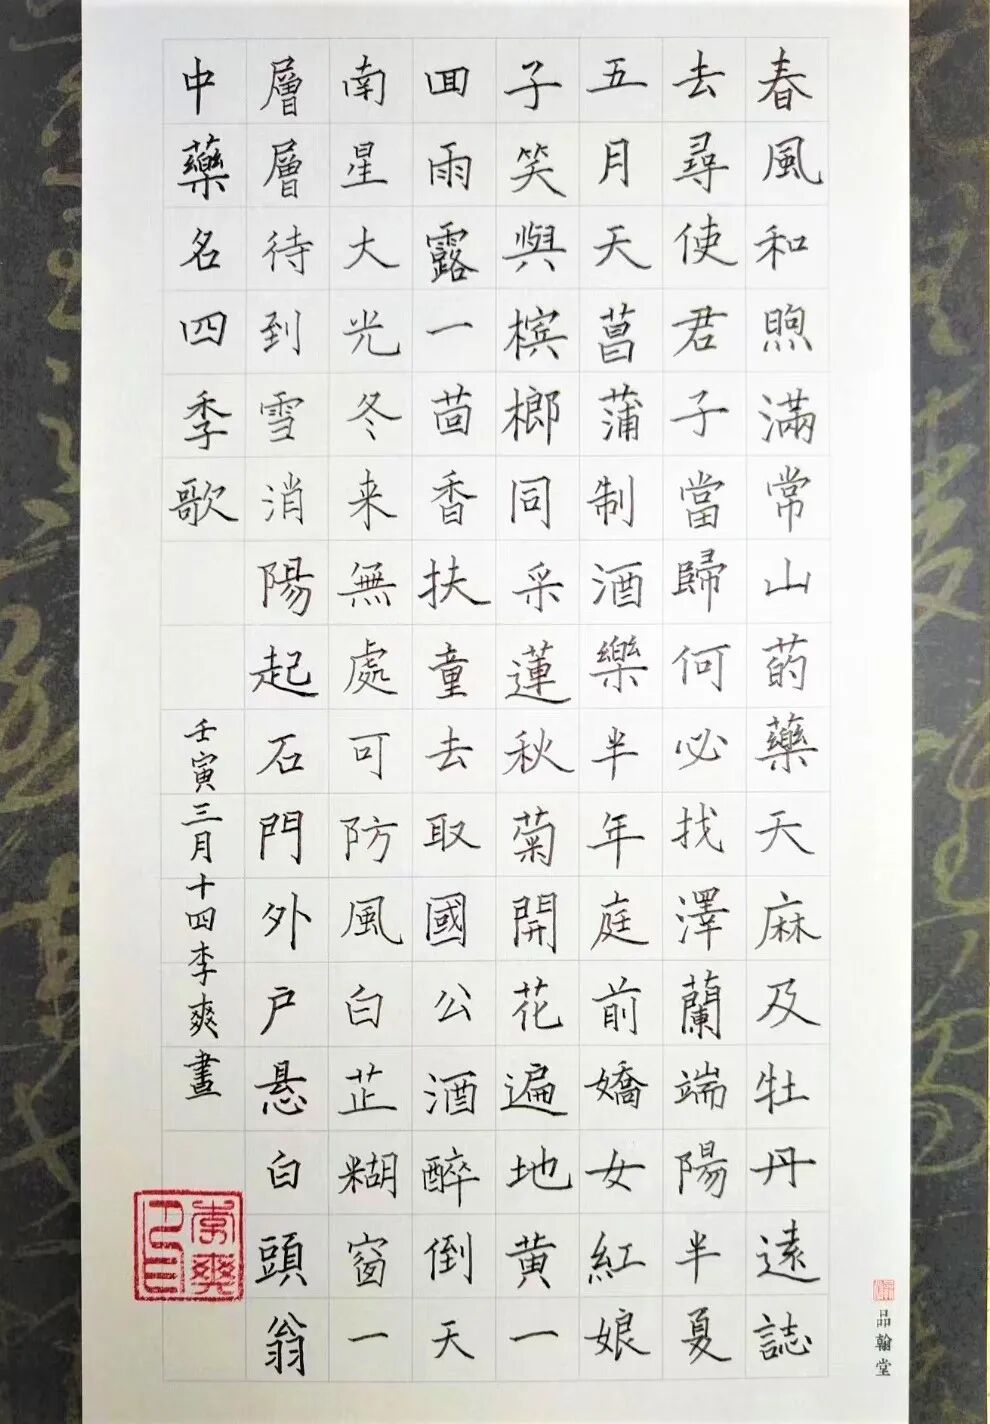 春風和煦滿常山芍藥天麻及牡丹遠誌
去尋使君子當歸何必找澤蘭端陽半夏
五月天菖蒲制酒樂半年庭前嬌女紅娘
子笑與檳榔同采蓮秋菊開花遍地黃一
回雨露一茴香扶童去取國公酒醉倒天
南星大光冬来無處可防風白芷糊窗一
層層待到雪消陽起石門外户悬白頭翁
中藥名四季歌
壬寅三月十四李爽書
李爽
品翰堂